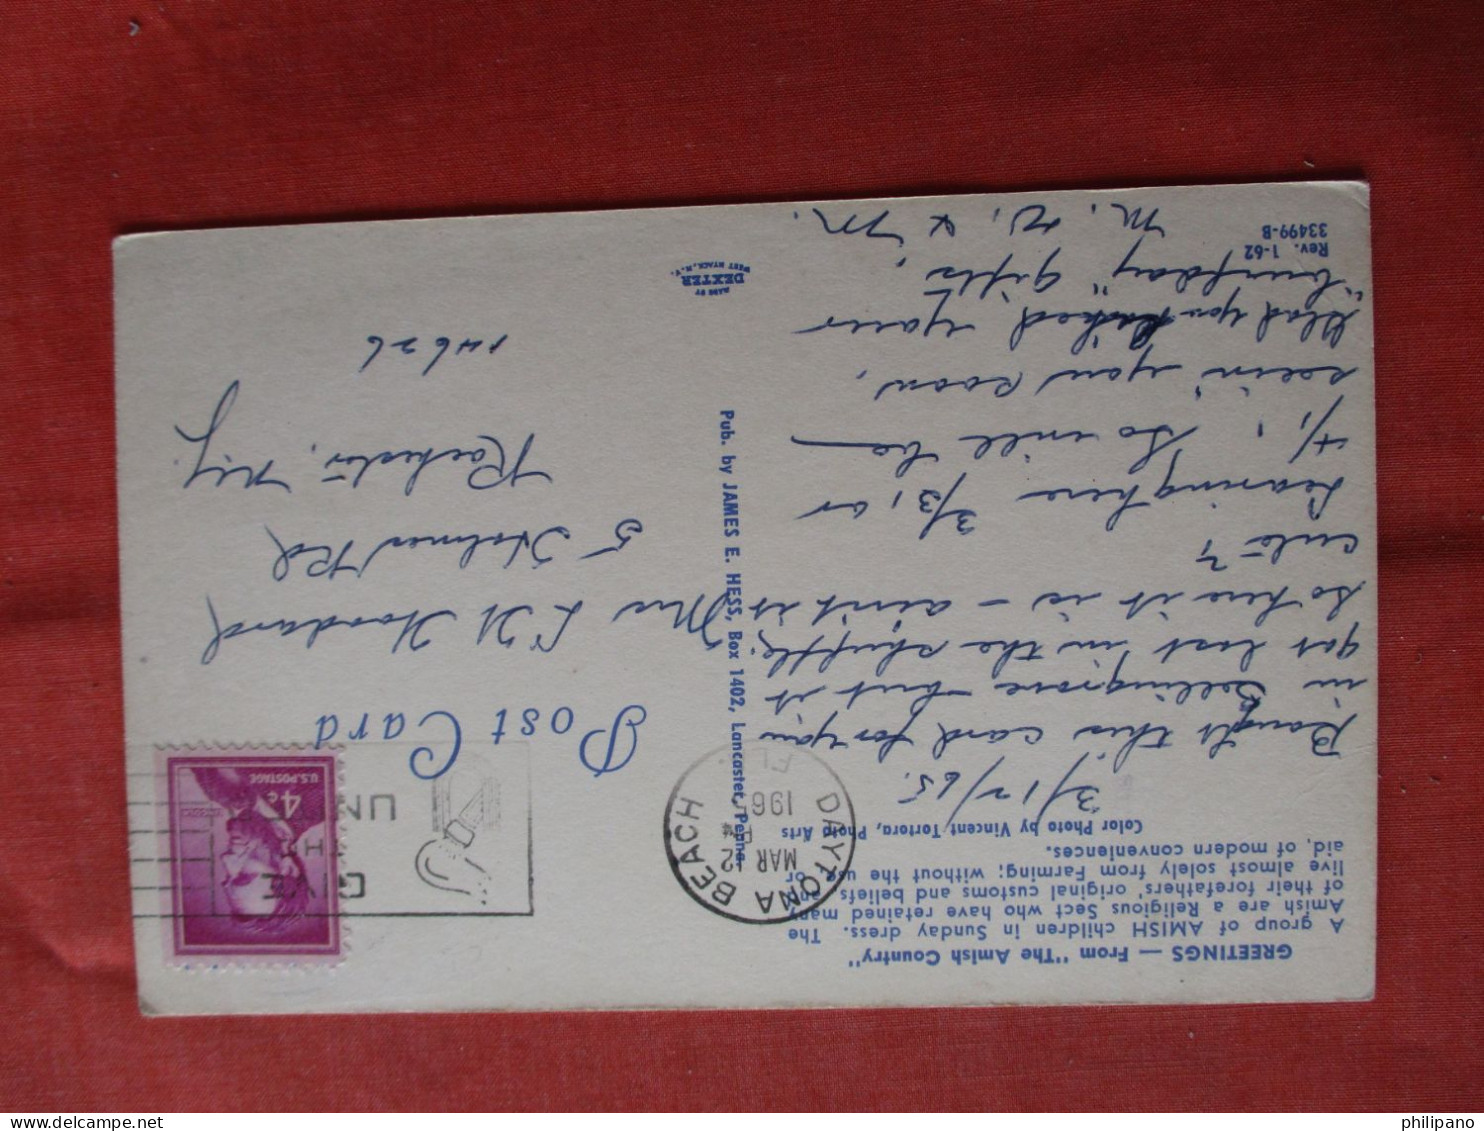 GREETINGS — From "The Amish Country"
A group of AMISH children in Sunday dress. The
Amish are a Religious Sect who have retained many
of their forefathers' original customs and beliefs and
live almost solely from Farming; without the use or
aid, of modern conveniences.
Color Photo by Vincent Tortora, Photo Arts
3/12/65.
Bought this card for you
in Selinsgrove - but it
got lost in the shuffle,
so here it is - ain't it
cute?
Leaving here 3/31 or
4/1, So will be
seein' you soon.
Glad you liked your
"burfday" gifts.
M. W. & M.
Rev. 1-62
33499-B
Pub. by JAMES E. HESS, Box 1402, Lancaster, Penna.
MADE BY
DEXTER
WEST NYACK, N.Y.
DAYTONA BEACH
MAR 12
PM
196
FL
GIVE
UN
U.S. POSTAGE
4¢
LINCOLN
Post Card
Mrs L H Woodard
5 Holmes Rd
Rochester, N.Y.
14626
philipano